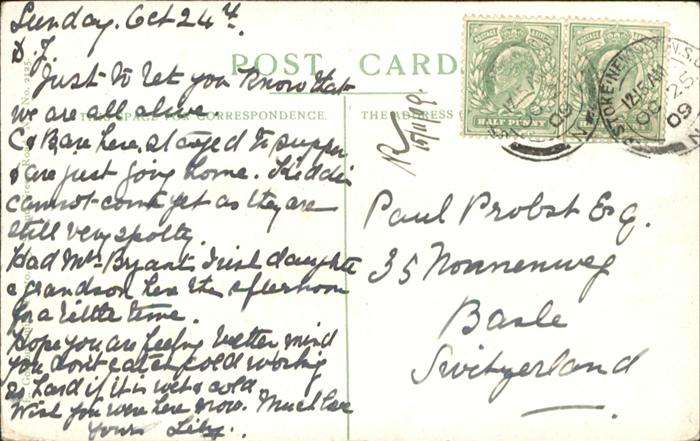 Sunday. Oct 24th.
D. F.
Just to let you know that
we are all alive.
C & B are here, stayed to supper
& are just going home. Kiddie
cannot come yet as they are
still very spotty.
Had Mrs Bryant's daughter
& grandson here this afternoon
for a little time.
Hope you are feeling better mind
you don't catch cold working
so hard if it is wet & cold
Wish you were here now. Much love
Yours Lily.
POST CARD
THIS SPACE FOR CORRESPONDENCE.
THE ADDRESS
R 15/11/9.
HALF PENNY
HALF PENNY
STOKE NEWINGTON
12.15 AM
OC 25
09
N
Paul Probst Esq.
35 Nonnenweg
Basle
Switzerland